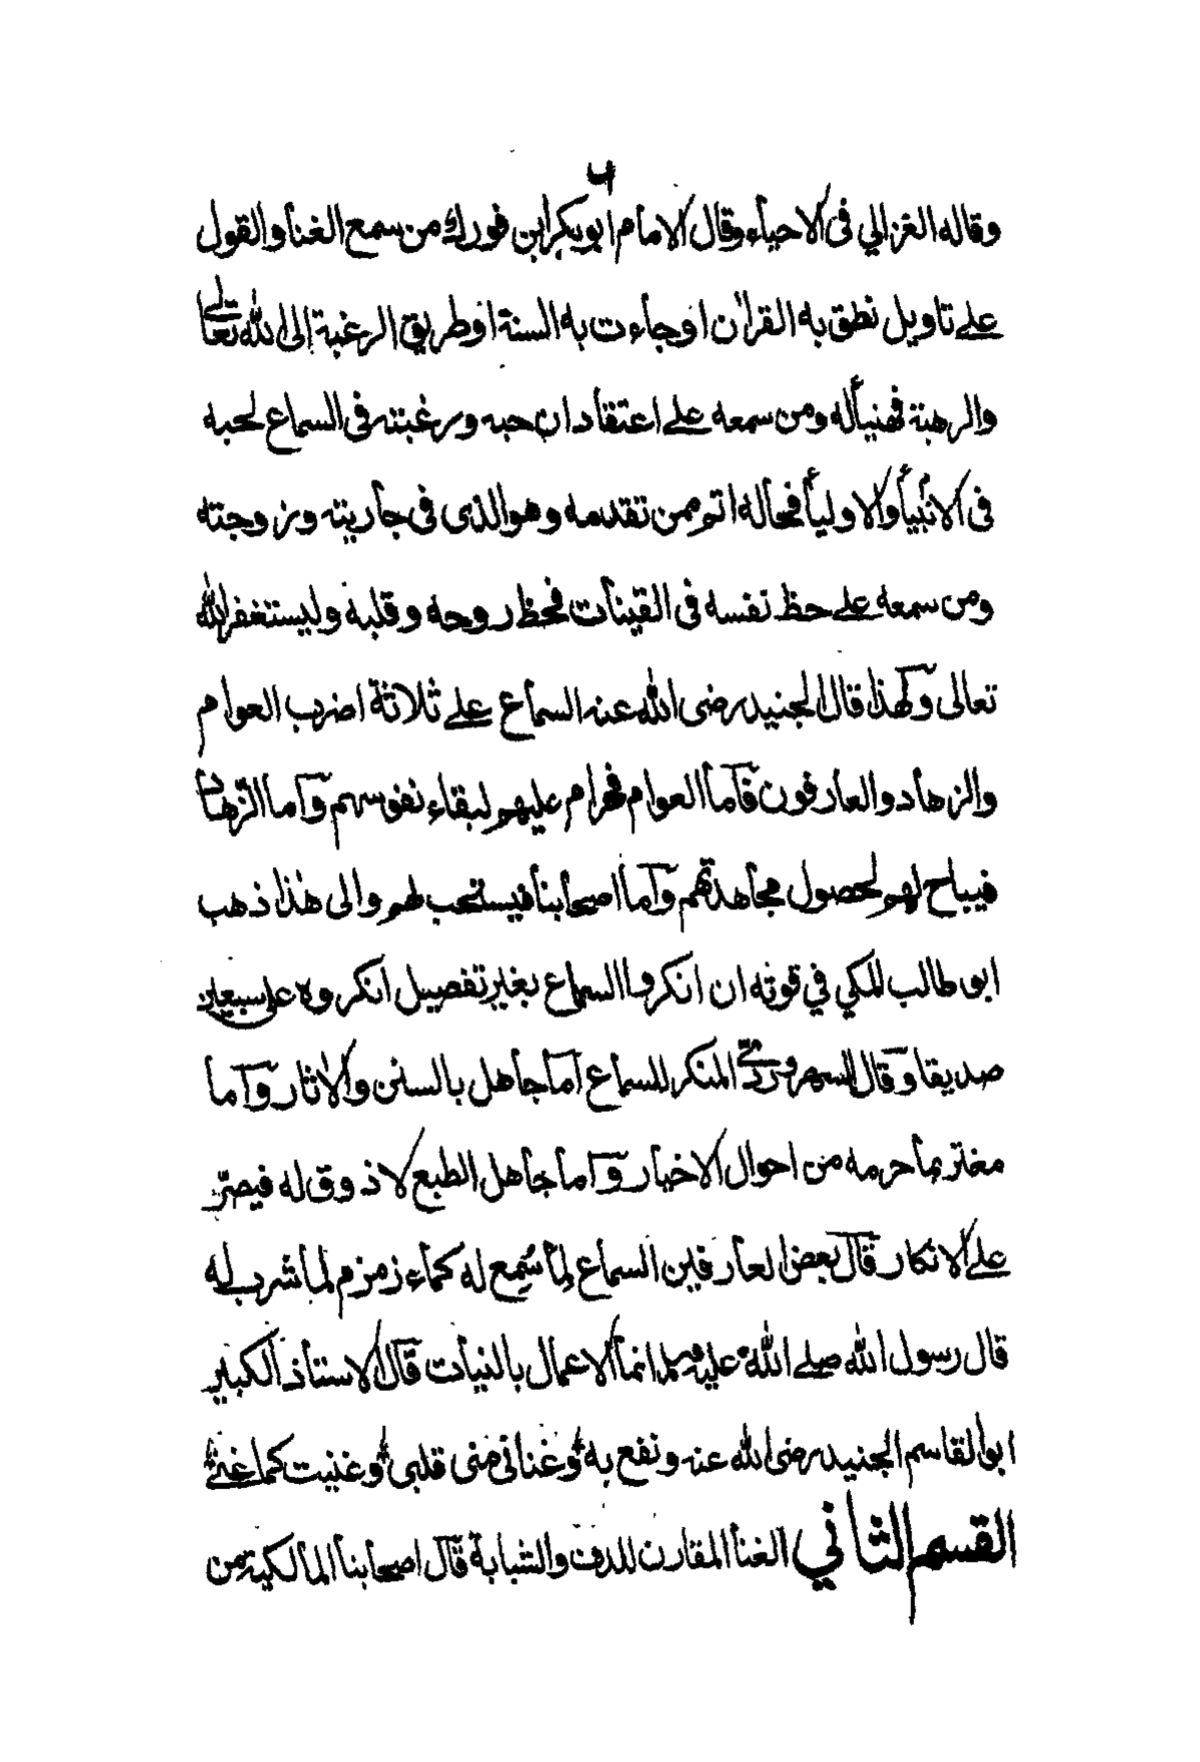 ٦
وقاله الغزالي فى الاحياء وقال الامام ابو بكر ابن فورك من سمع الغنا والقول
على تاويل نطق به القران او جاءت به السنة او طريق الرغبة الى الله تعالى
والرهبة فهنيأ له ومن سمعه على اعتقاد ان حبه ورغبته فى السماع لحبه
فى الانبيا والاوليا فحاله اتم ممن تقدمه وهو الذى فى جاريته وزوجته
ومن سمعه على حظ نفسه فى القينات فحظ روحه وقلبه وليستغفر الله
تعالى ولهذا قال الجنيد رضى الله عنه السماع على ثلاثة اضرب العوام
والزهاد والعارفون فاما العوام فحرام عليهم لبقاء نفوسهم واما الزهاد
فيباح لهم لحصول مجاهدتهم واما اصحابنا فيستحب لهم والى هذا ذهب
ابو طالب المكي في قوته ان انكروا السماع بغير تفصيل انكروه على سبعين
صديقا وقال السهروردى المنكر للسماع اما جاهل بالسنن والاثار واما
مغتر بما حرمه من احوال الاخيار واما جاهل الطبع لا ذوق له فيصرّ
على الانكار قال بعض العارفين السماع لِما سُمِع له كماء زمزم لما شرب له
قال رسول الله صلى الله عليه وسلم انما الاعمال بالنيات قال الاستاذ الكبير
ابو القاسم الجنيد رضى الله عنه ونفع به وغنانى منى قلبى وغنيت كما غنى
القسم الثاني الغنا المقارن للدف والشبابة قال اصحابنا المالكية من